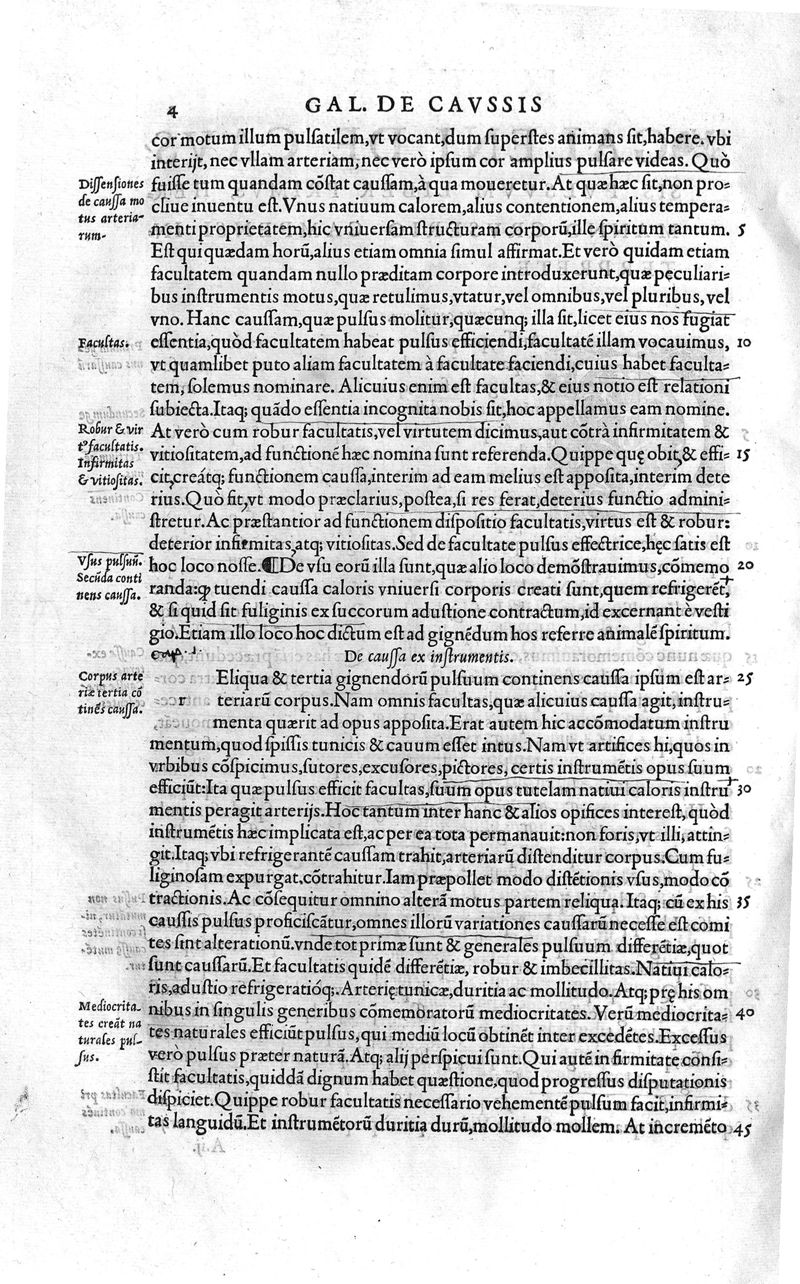 4
GAL. DE CAVSSIS
cor motum illum pulſatilem,vt vocant,dum ſuperſtes animans ſit,habere. vbi
interijt, nec vllam arteriam, nec verò ipſum cor amplius pulſare videas. Quò
Diſſenſiones
de cauſſa mo
tus arteria-
rum.
fuiſſe tum quandam cõſtat cauſſam,à qua moueretur. At quæ hæc ſit,non pro=
cliue inuentu eſt. Vnus natiuum calorem,alius contentionem,alius tempera=
menti proprietatem,hic vniuerſam ſtructuram corporũ,ille ſpiritum tantum. 5
Eſt qui quædam horũ,alius etiam omnia ſimul affirmat.Et verò quidam etiam
facultatem quandam nullo præditam corpore introduxerunt,quæ peculiari=
bus inſtrumentis motus,quæ retulimus,vtatur,vel omnibus,vel pluribus,vel
vno. Hanc cauſſam,quæ pulſus molitur,quæcunq; illa ſit,licet eius nos fugiat
Facultas.
eſſentia,quòd facultatem habeat pulſus efficiendi,facultatẽ illam vocauimus, 10
vt quamlibet puto aliam facultatem à facultate faciendi,cuius habet faculta=
tem, ſolemus nominare. Alicuius enim eſt facultas,& eius notio eſt relationi
ſubiecta.Itaq; quãdo eſſentia incognita nobis ſit,hoc appellamus eam nomine.
Robur & vir
tꝰ facultatis.
Infirmitas
& vitioſitas.
At verò cum robur facultatis,vel virtutem dicimus,aut cõtrà infirmitatem &
vitioſitatem,ad functionẽ hæc nomina ſunt referenda.Quippe quę obit,& effi= 15
cit,creátq; functionem cauſſa,interim ad eam melius eſt appoſita,interim dete
rius.Quò fit,vt modo præclarius,poſtea,ſi res ferat,deterius functio admini=
ſtretur.Ac præſtantior ad functionem diſpoſitio facultatis,virtus eſt & robur:
deterior infirmitas,atq; vitioſitas.Sed de facultate pulſus effectrice,hęc ſatis eſt
Vſus pulſuũ.
Secũda conti
nens cauſſa.
hoc loco noſſe.¶De vſu eorũ illa ſunt,quæ alio loco demõſtrauimus,cõmemo 20
randa:ꝙ tuendi cauſſa caloris vniuerſi corporis creati ſunt,quem refrigerẽt,
& ſi quid ſit fuliginis ex ſuccorum aduſtione contractum,id excernant è veſti
gio.Etiam illo loco hoc dictum eſt ad gignẽdum hos referre animalẽ ſpiritum.
De cauſſa ex inſtrumentis.
Corpus arte
riæ tertia cõ
tinẽs cauſſa.
r
Eliqua & tertia gignendorũ pulſuum continens cauſſa ipſum eſt ar= 25
teriarũ corpus.Nam omnis facultas,quæ alicuius cauſſa agit,inſtru=
menta quærit ad opus appoſita.Erat autem hic accõmodatum inſtru
mentum,quod ſpiſſis tunicis & cauum eſſet intus.Nam vt artifices hi,quos in
vrbibus cõſpicimus,ſutores,excuſores,pictores, certis inſtrumẽtis opus ſuum
efficiũt:Ita quæ pulſus efficit facultas,ſuum opus tutelam natiui caloris inſtru 30
mentis peragit arterijs.Hoc tantum inter hanc & alios opifices intereſt, quòd
inſtrumẽtis hæc implicata eſt,ac per ea tota permanauit:non foris,vt illi,attin=
git.Itaq; vbi refrigerantẽ cauſſam trahit,arteriarũ diſtenditur corpus.Cum fu=
liginoſam expurgat,cõtrahitur.Iam præpollet modo diſtẽtionis vſus,modo cõ
tractionis.Ac cõſequitur omnino alterã motus partem reliqua. Itaq; cũ ex his 35
cauſſis pulſus proficiſcãtur,omnes illorũ variationes cauſſarũ neceſſe eſt comi
tes ſint alterationũ.vnde tot primæ ſunt & generales pulſuum differẽtiæ,quot
ſunt cauſſarũ.Et facultatis quidẽ differẽtiæ, robur & imbecillitas.Natiui calo=
ris,aduſtio refrigeratióq;.Arterię tunicæ,duritia ac mollitudo.Atq; prę his om
Mediocrita-
tes creãt na
turales pul-
ſus.
nibus in ſingulis generibus cõmemoratorũ mediocritates.Verũ mediocrita= 40
tes naturales efficiũt pulſus,qui mediũ locũ obtinẽt inter excedẽtes.Exceſſus
verò pulſus præter naturã.Atq; alij perſpicui ſunt.Qui autẽ infirmitate conſi=
ſtit facultatis,quiddã dignum habet quæſtione,quod progreſſus diſputationis
diſpiciet.Quippe robur facultatis neceſſario vehementẽ pulſum facit,infirmi=
tas languidũ.Et inſtrumẽtorũ duritia durũ,mollitudo mollem. At incremẽto 45